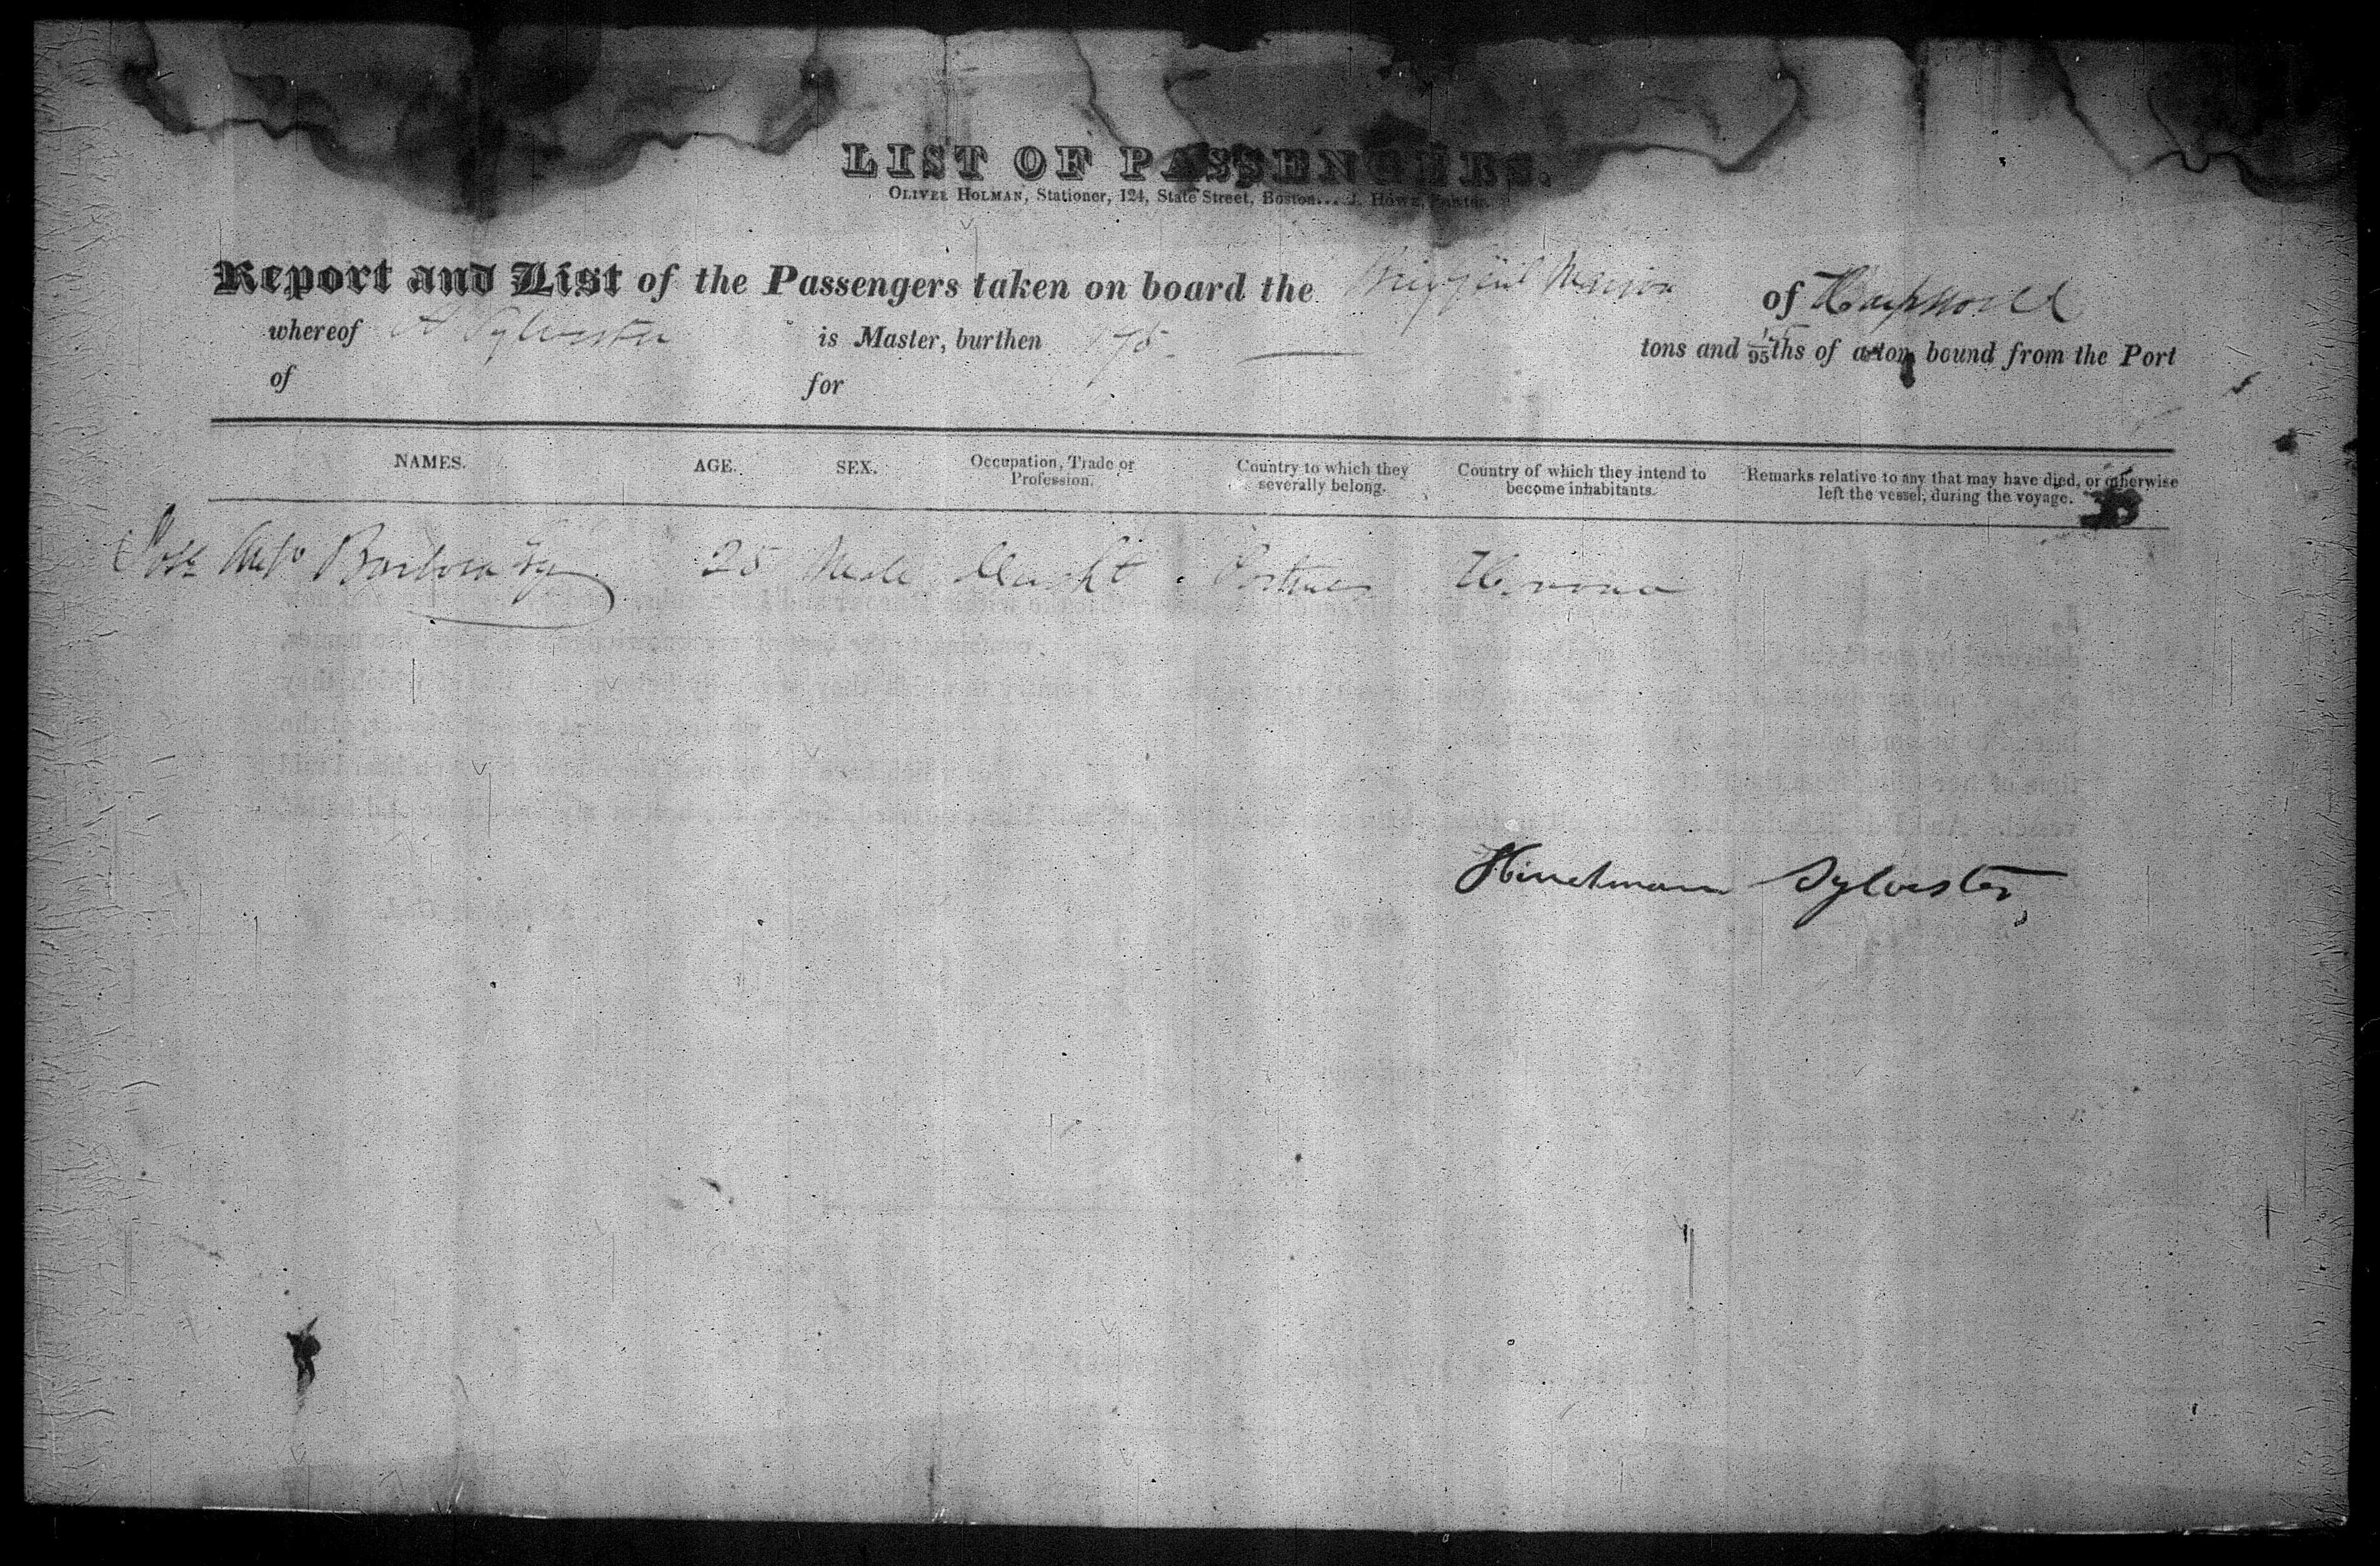 LIST OF PASSENGERS.
OLIVER HOLMAN, Stationer, 124, State Street, Boston.... J. HOWE, Printer.
Report and List of the Passengers taken on board the Brig of Harpswell
whereof H Sylvester is Master, burthen 175 tons and /95ths of a ton, bound from the Port
of for
NAMES. AGE. SEX. Occupation, Trade or Profession. Country to which they severally belong. Country of which they intend to become inhabitants. Remarks relative to any that may have died, or otherwise left the vessel, during the voyage.
Jose 25 Male
Hinchman Sylvester